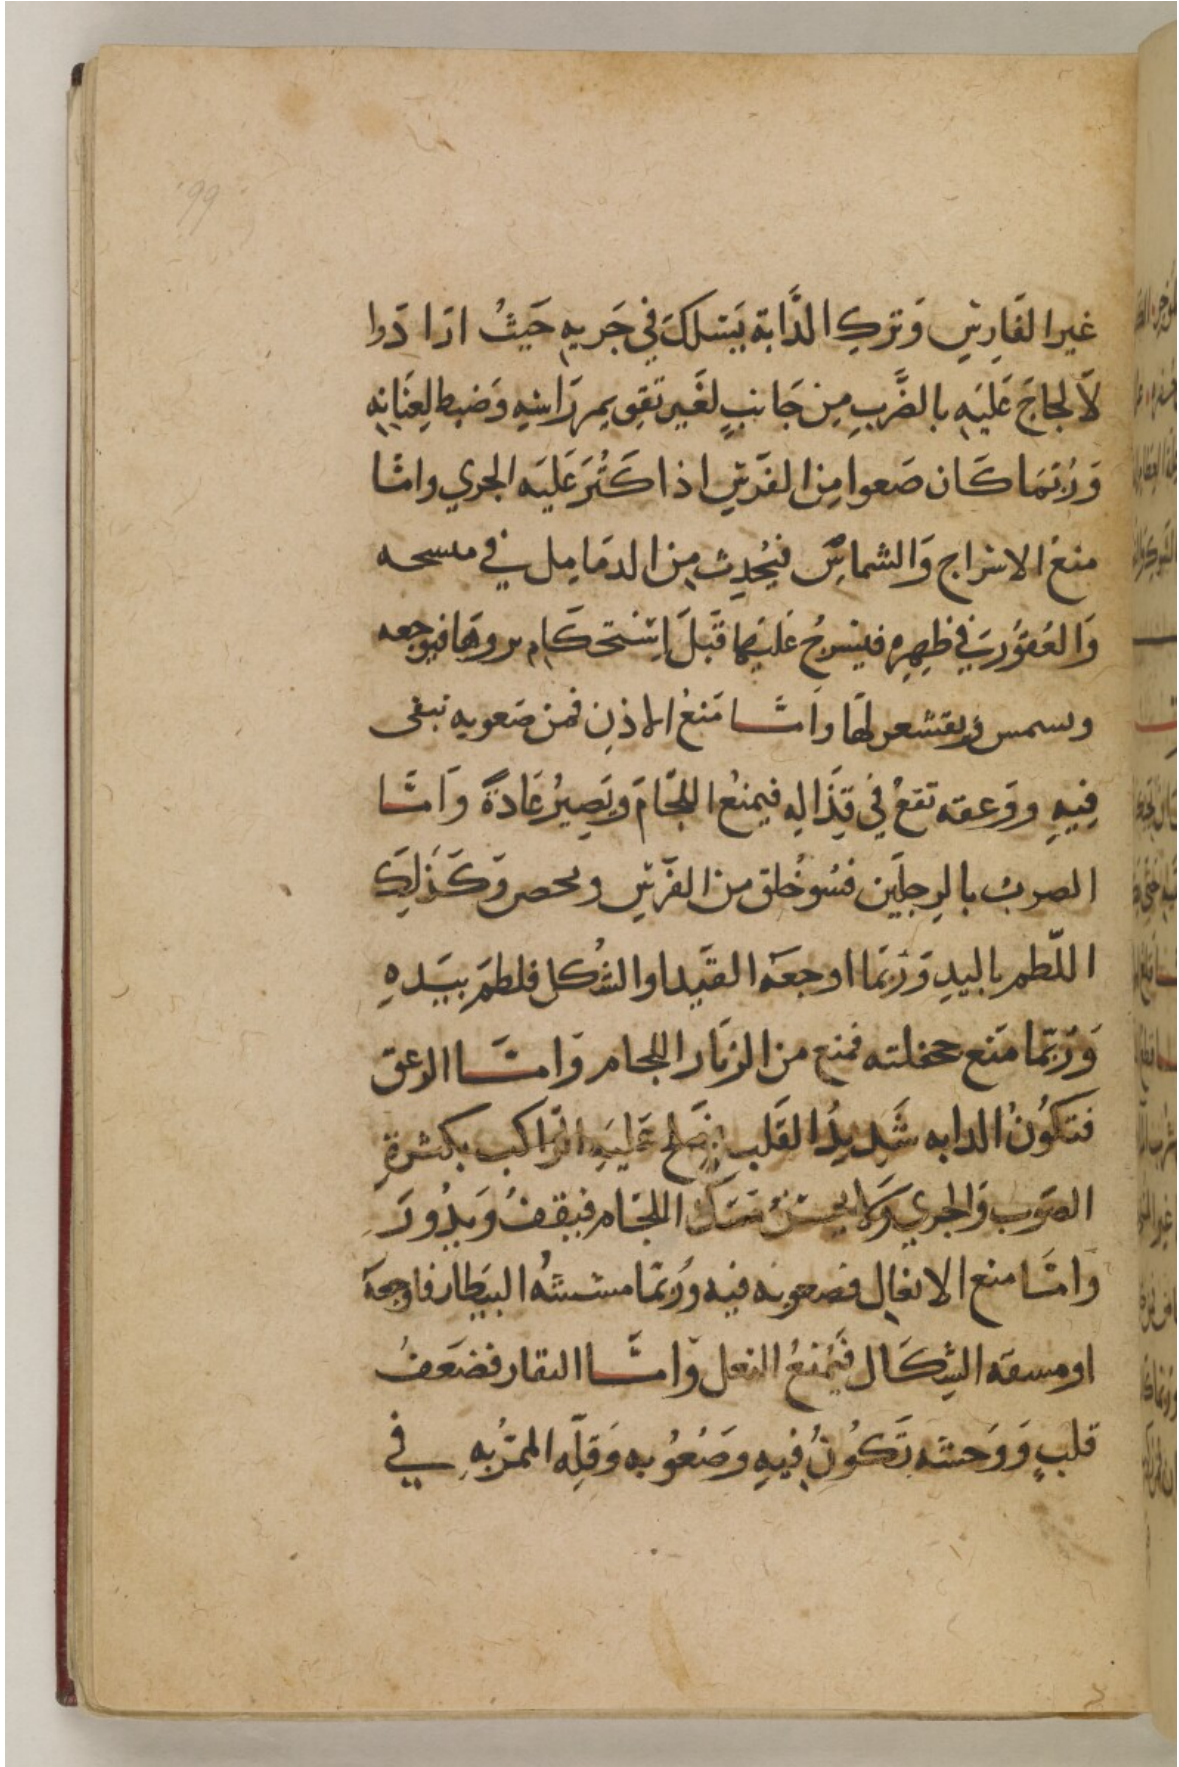 غير الفَارِسِ وَتركِ الدَّابة يَسَلكَ في جَريهِ حَيثُ ارَا دَوا
لاَّ لجاجَ عَليَهِ بالضَّربِ مِن جَانبٍ لغَير تقوِيمِ رَاسهِ وَضبط لِعنَانِهِ
وَرُبَّمَا كَان صَعوا مِن الفَرسِ اذا كَثُرَ عَليَه الجري وامَّا
منعَ الاسراج وَالشماسِ فيُحدِث مِن الدمَامِل في مسحه
وَالعُقوُرِ في ظهرِهِ فيسرجُ عَليهَا قَبلَ اِستحكَامِ بروها فيوجعه
وسمس ويقشعر لهَا وَامَّا مَنعُ الاذنِ فمن صَعوبه تبقى
فِيهِ ووَعقه تقعُ في قِذَالِه فيمنعُ اللجَامَ ويَصِيرُ عَادةً وَامَّا
الضرب بالرِجلَين فسُو خُلق من الفرَسِ وَكَذلِكَ
اللّطم باليدِ وَرُبمَا اوجعَهُ القَيد او الشُكل فلطَمَ بيَدهِ
وَرُبّما مَنع جحفلته فمنع من الزيَار اللجام وَامَّا الزعق
فتكوُنُ الدابه شَدِيدُ القَلب عَليَهِ الرَّاكب بكثرةِ
الضرب وَالجري وَلا يحسنُ مَسَكَ اللجَام فيقفُ وَيدُورَ
وَامَّا منع الانعَال فصعوبه فيه وَرُبّما مسَّهُ البيَطار فاوجعَهُ
او مسقه الشِكَال فَيمنعُ النعل وَامَّا النفار فضَعَفُ
قلبٍ وَوَحشه تَكوُنُ فيهِ وَصَعُوبه وَقِلَّه المرّبهِ في